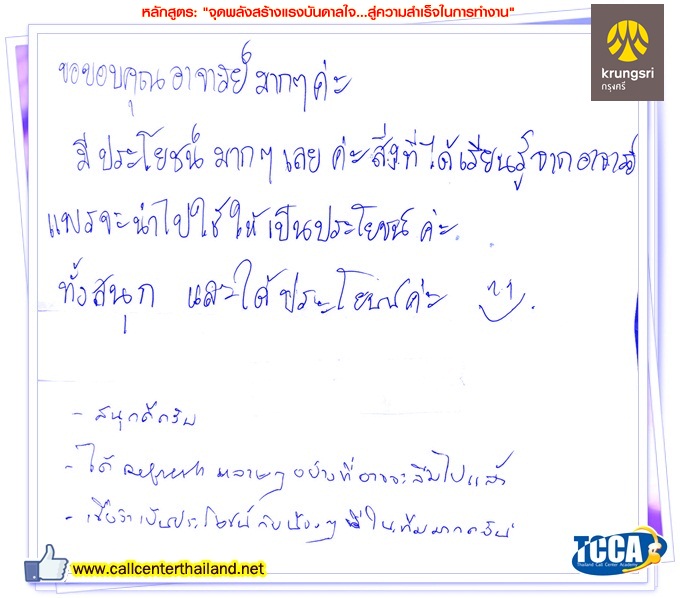 หลักสูตร: "จุดพลังสร้างแรงบันดาลใจ...สู่ความสำเร็จในการทำงาน"
krungsri
กรุงศรี
ขอขอบคุณอาจารย์มากๆค่ะ
มีประโยชน์มากๆเลยค่ะสิ่งที่ได้เรียนรู้จากอาจารย์
แพรจะนำไปใช้ให้เป็นประโยชน์ค่ะ.
ทั้งสนุก และได้ประโยชน์ค่ะ
- สนุกดีครับ
- ได้ refresh หลายๆอย่างที่อาจจะลืมไปแล้ว
- เชื่อว่าเป็นประโยชน์กับน้องๆ ในทีมมากครับ
TCCA
Thailand Call Center Academy
www.callcenterthailand.net